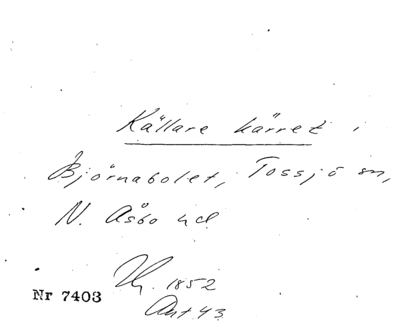 Källare kärret i
Björnabolet, Tossjö sn,
N. Åsbo hd
1852
Nr 7403
Ant 43